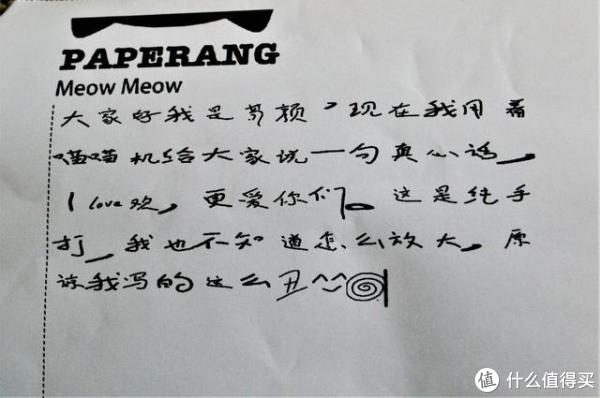 PAPERANG
Meow Meow
大家好我是 颜，现在我用着
喵喵机给大家说一句真心话，
I love 欢，更爱你们。这是纯手
打，我也不知道怎么放大，原
谅我写的这么丑^^
值 什么值得买